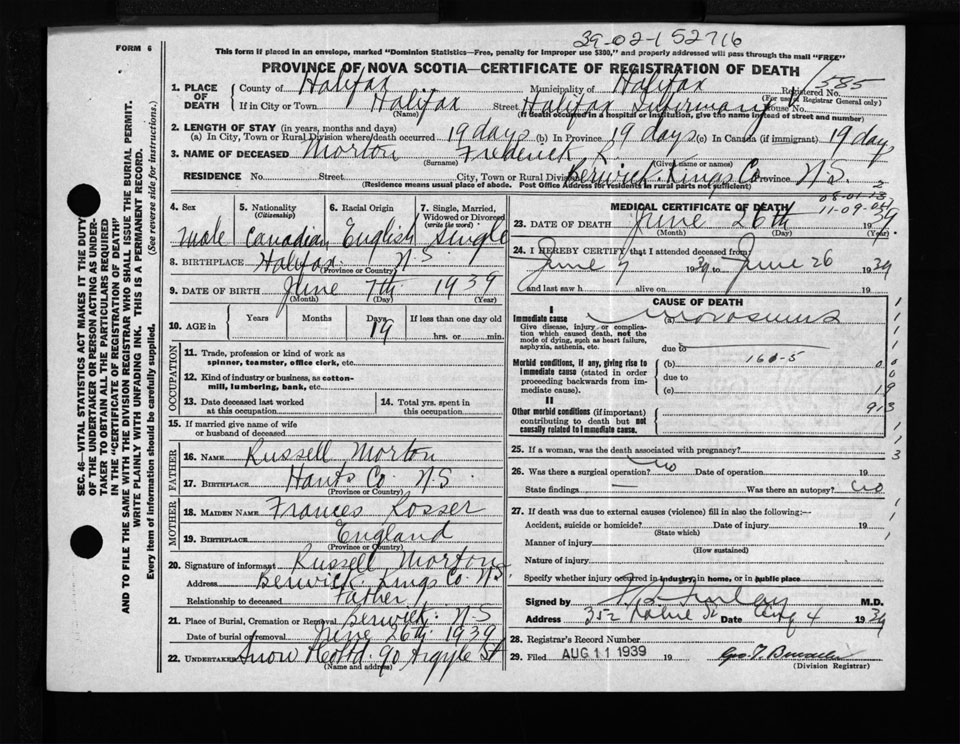 39-02-152716
FORM 6
This form if placed in an envelope, marked "Dominion Statistics—Free, penalty for improper use $300," and properly addressed will pass through the mail "FREE"
PROVINCE OF NOVA SCOTIA—CERTIFICATE OF REGISTRATION OF DEATH
1. PLACE OF DEATH
County of Halifax Municipality of Halifax Registered No. 585
(For use of Registrar General only)
If in City or Town Halifax Street Halifax Infirmary House No.
(Name) (If death occurred in a hospital or institution, give the name instead of street and number)
2. LENGTH OF STAY (in years, months and days)
(a) In City, Town or Rural Division where death occurred 19 days (b) In Province 19 days (c) In Canada (if immigrant) 19 days
3. NAME OF DECEASED Morton Frederick R
(Surname) (Given name or names)
RESIDENCE No. Street City, Town or Rural Division Berwick. Kings Co Province N.S.
(Residence means usual place of abode. Post Office Address for residents in rural parts not sufficient)
4. Sex 5. Nationality (Citizenship) 6. Racial Origin 7. Single, Married, Widowed or Divorced (write the word)
male Canadian English Single
8. BIRTHPLACE Halifax N.S.
(Province or Country)
9. DATE OF BIRTH June 7th 1939
(Month) (Day) (Year)
10. AGE in Years Months Days If less than one day old
19 hrs. or min.
OCCUPATION
11. Trade, profession or kind of work as spinner, teamster, office clerk, etc.
12. Kind of industry or business, as cotton-mill, lumbering, bank, etc.
13. Date deceased last worked at this occupation
14. Total yrs. spent in this occupation
15. If married give name of wife or husband of deceased
FATHER
16. Name Russell Morton
17. Birthplace Hants Co N.S
(Province or Country)
MOTHER
18. MAIDEN NAME Frances Rosser
19. BIRTHPLACE England
(Province or Country)
20. Signature of informant Russell Morton
Address Berwick. Kings Co NS
Relationship to deceased Father
21. Place of Burial, Cremation or Removal Berwick. N.S
Date of burial or removal June 26th 1939
22. UNDERTAKER Snow & Co Ltd. 90 Argyle St
(Name and address)
MEDICAL CERTIFICATE OF DEATH
11-09-
23. DATE OF DEATH June 26th 1939.
(Month) (Day) (Year)
24. I HEREBY CERTIFY that I attended deceased from
June 7 1939 to June 26 1939
and last saw h alive on 19
CAUSE OF DEATH
I
Immediate cause (a)
Give disease, injury or complication which caused death, not the mode of dying, such as heart failure, asphyxia, asthenia, etc.
due to
160-5
Morbid conditions, if any, giving rise to immediate cause (stated in order proceeding backwards from immediate cause).
(b)
due to
(c) 19
II
Other morbid conditions (if important) contributing to death but not causally related to immediate cause.
913
25. If a woman, was the death associated with pregnancy?
26. Was there a surgical operation? no Date of operation 19
State findings — Was there an autopsy? no
27. If death was due to external causes (violence) fill in also the following:—
Accident, suicide or homicide? Date of injury 19
(State which)
Manner of injury
(How sustained)
Nature of injury
Specify whether injury occurred in industry, in home, or in public place
Signed by Finlay M.D.
Address 352 Robie St Date Aug 4 1939
28. Registrar's Record Number
29. Filed AUG 11 1939 19
(Division Registrar)
SEC. 46—VITAL STATISTICS ACT MAKES IT THE DUTY OF THE UNDERTAKER OR PERSON ACTING AS UNDERTAKER TO OBTAIN ALL THE PARTICULARS REQUIRED IN THE "CERTIFICATE OF REGISTRATION OF DEATH"
AND TO FILE THE SAME WITH THE DIVISION REGISTRAR WHO SHALL ISSUE THE BURIAL PERMIT.
WRITE PLAINLY WITH UNFADING INK. THIS IS A PERMANENT RECORD.
Every item of information should be carefully supplied. (See reverse side for instructions.)